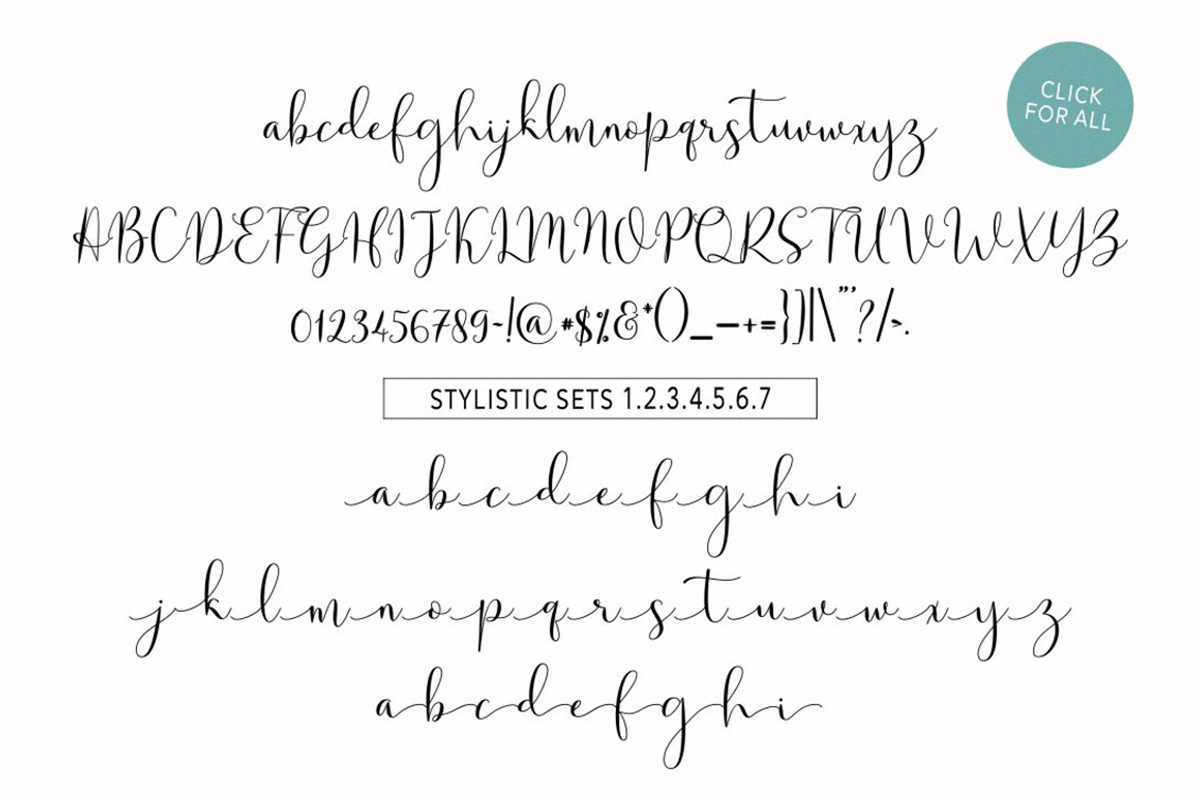 CLICK
FOR ALL
abcdefghijklmnopqrstuvwxyz
ABCDEFGHIJKLMNOPQRSTUVWXYZ
0123456789-!@#$%&*()_—+=}]|\"'?/>.
STYLISTIC SETS 1.2.3.4.5.6.7
abcdefghi
jklmnopqrstuvwxyz
abcdefghi